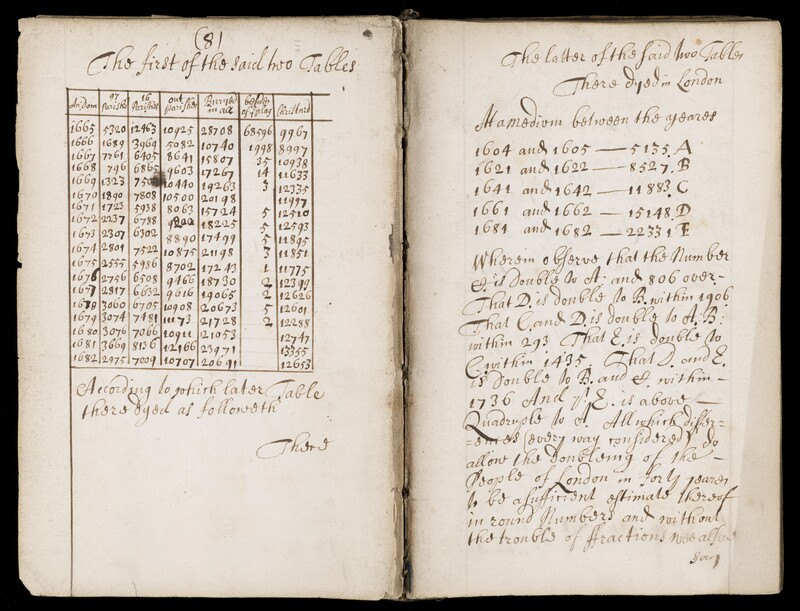 (8)
The first of the said two Tables
An: Dom 97 Parishes 16 Parishes out Parishes Burryed in all besides of ye plag Christnd
1665 5320 12463 10925 28708 68596 9967
1666 1689 3969 5082 10740 1998 8997
1667 761 6405 8641 15807 35 10938
1668 796 6865 9603 17267 14 11633
1669 1323 7500 10440 19263 3 12335
1670 1890 7808 10500 20198 11997
1671 1723 5938 8063 15724 5 12510
1672 2237 6788 9200 18225 5 12593
1673 2307 6302 8890 17499 5 11895
1674 2801 7522 10875 21198 3 11851
1675 2555 5986 8702 17243 1 11775
1676 2756 6508 9466 18730 2 12399
1677 2817 6632 9616 19065 2 12626
1678 3060 6705 10908 20673 5 12601
1679 3074 7481 11173 21728 2 12288
1680 3076 7066 10911 21053 12747
1681 3669 8136 12166 23971 13355
1682 2975 7009 10707 20691 12653
According to which later Table
there dyed as followeth
There
The latter of the said two Tables
There dyed in London
At a medium between the yeares
1604 and 1605 — 5135. A
1621 and 1622 — 8527. B
1641 and 1642 — 11883. C
1661 and 1662 — 15148. D
1681 and 1682 — 22331 E
Wherein observe that the Number
C. is double to A: and 806 over-
That D. is double to B. within 1906
That C. and D. is double to A: B:
within 293 That E. is double to
C. within 1435. That D. and E.
is double to B. and C. within-
1736 And yt E. is above-
Quadruple to A. All which differ-
=ences (every way considered) do
allow the doubleing of the-
People of London in forty yeares
to be a sufficient estimate thereof
in round Numbers and without
the trouble of ffractions wee also
say